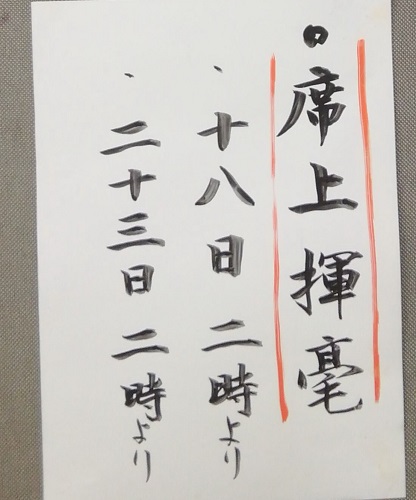 ●席上揮毫
、十八日二時より
、二十三日二時より